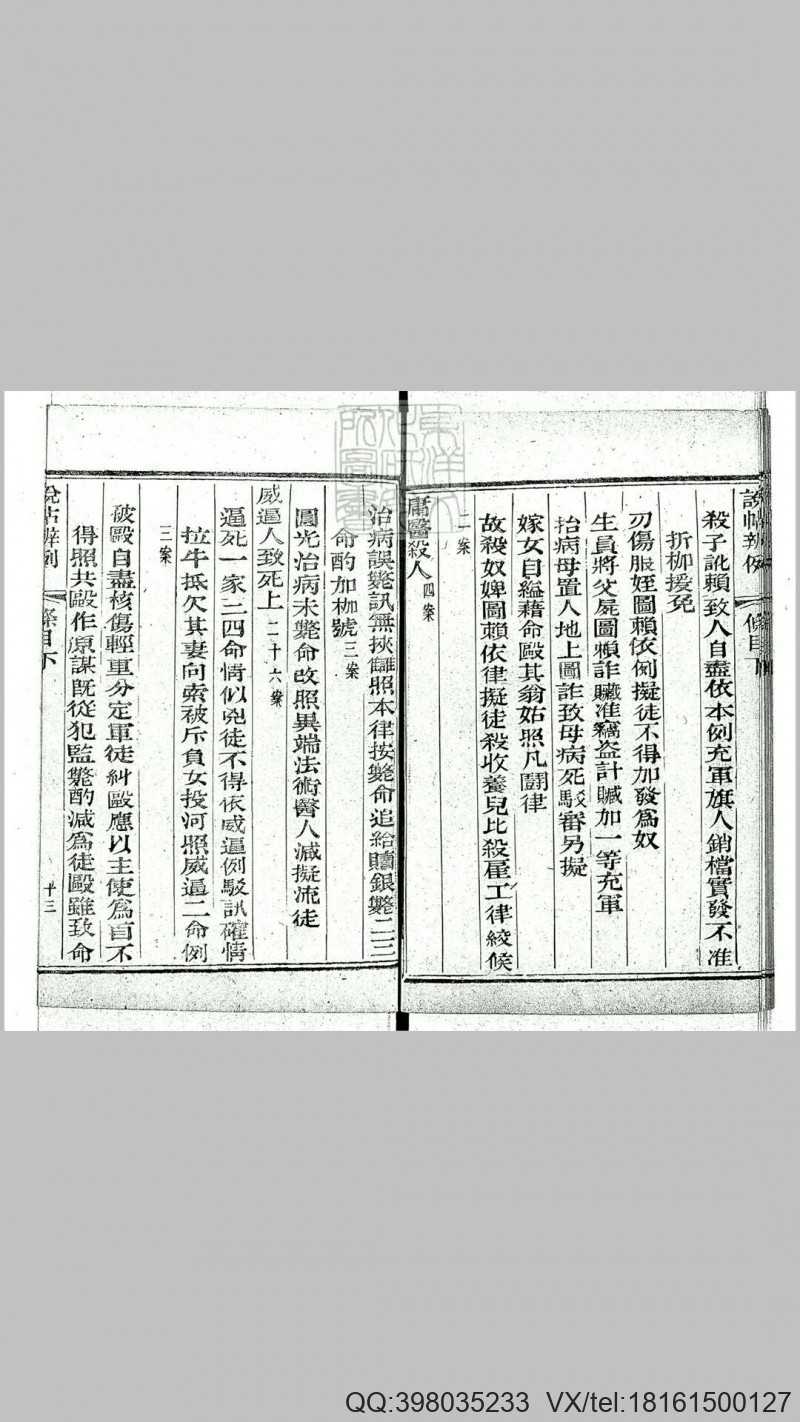 說帖辨例 條目下
殺子訛賴致人自盡依本例充軍旗人銷檔實發不准
折枷援免
刃傷服姪圖賴依例擬徒不得加發爲奴
生員將父屍圖賴詐贓准竊盜計贓加一等充軍
抬病母置人地上圖詐致母病死駁審另擬
嫁女自縊藉命毆其翁姑照凡鬬律
故殺奴婢圖賴依律擬徒殺收養兒比殺雇工律絞候
二案
庸醫殺人 四案
治病誤斃訊無挾讎照本律按斃命追給贖銀斃二三
命酌加枷號 三案
圓光治病未斃命改照異端法術醫人減擬流徒
威逼人致死上 二十六案
逼死一家三四命情似兇徒不得依威逼例駁訊確情
拉牛抵欠其妻向索被斥負女投河照威逼二命例
三案
被毆自盡核傷輕重分定軍徒糾毆應以主使爲首不
得照共毆作原謀旣從犯監斃酌減爲徒毆雖致命
說帖辨例 條目下 十三
QQ:398035233 VX/tel:18161500127